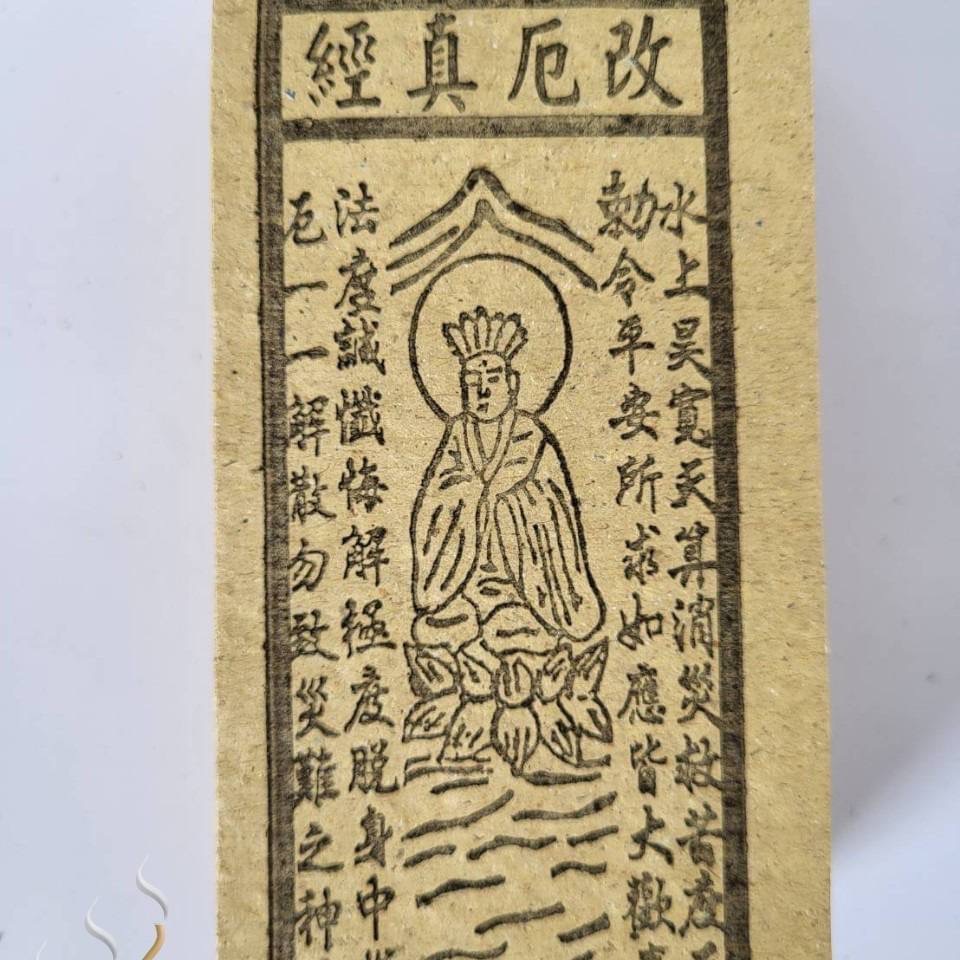 改厄真經
水上昊寬天算消災救苦度
勅令平安所求如應皆大歡
法度誠懺悔解極度脱身中
厄一一解散勿致災難之神